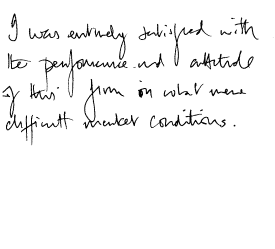 I was entirely satisfied with
the performance and attitude
of this firm in what were
difficult market conditions.